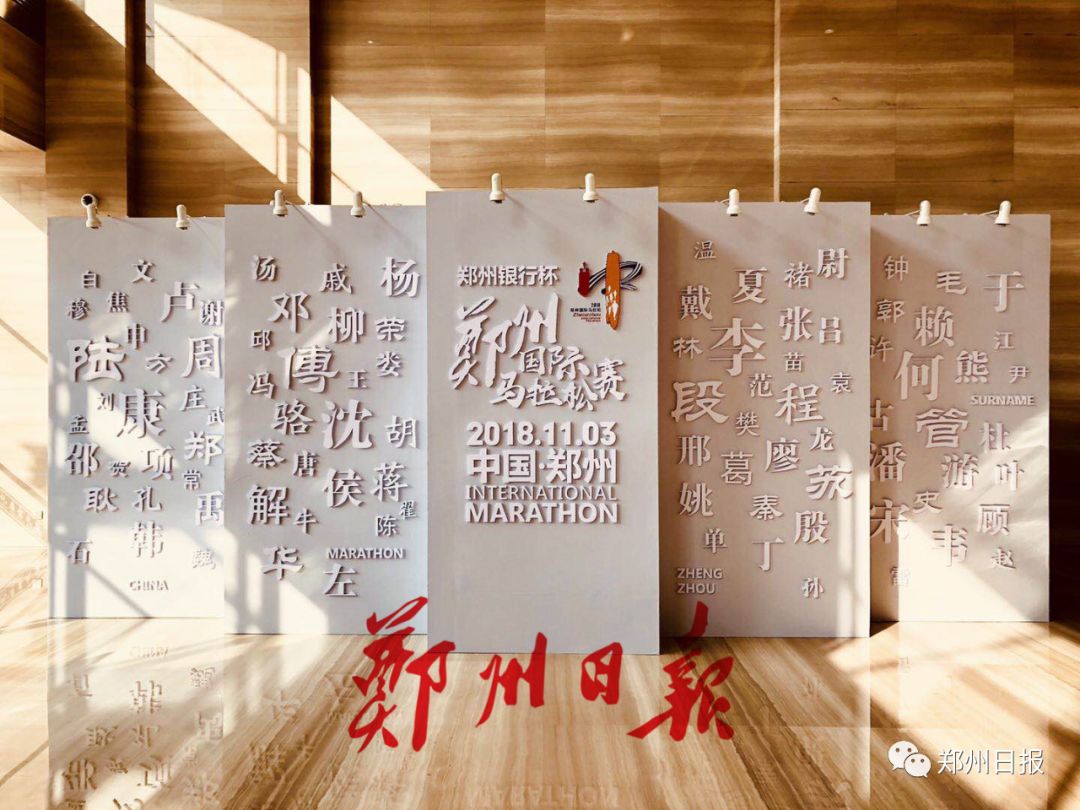 自
文
穆
焦
卢
谢
申
陆
方
周
刘
康
庄
武
孟
邵
贺
项
郑
常
耿
孔
禹
石
韩
魏
CHINA
汤
戚
杨
邓
柳
荣
邱
傅
王
娄
冯
骆
沈
胡
蔡
唐
侯
蒋
解
牛
陈
翟
华
MARATHON
左
郑州银行杯
郑州
国际
马拉松赛
2018.11.03
中国·郑州
INTERNATIONAL
MARATHON
温
夏
褚
尉
戴
张
吕
林
李
苗
段
范
程
袁
樊
邢
葛
廖
龙
姚
秦
殷
单
丁
ZHENG
ZHOU
孙
钟
毛
于
郭
赖
江
许
何
熊
尹
SURNAME
古
管
杜
潘
游
叶
宋
史
顾
韦
赵
雷
郑州日报
郑州日报